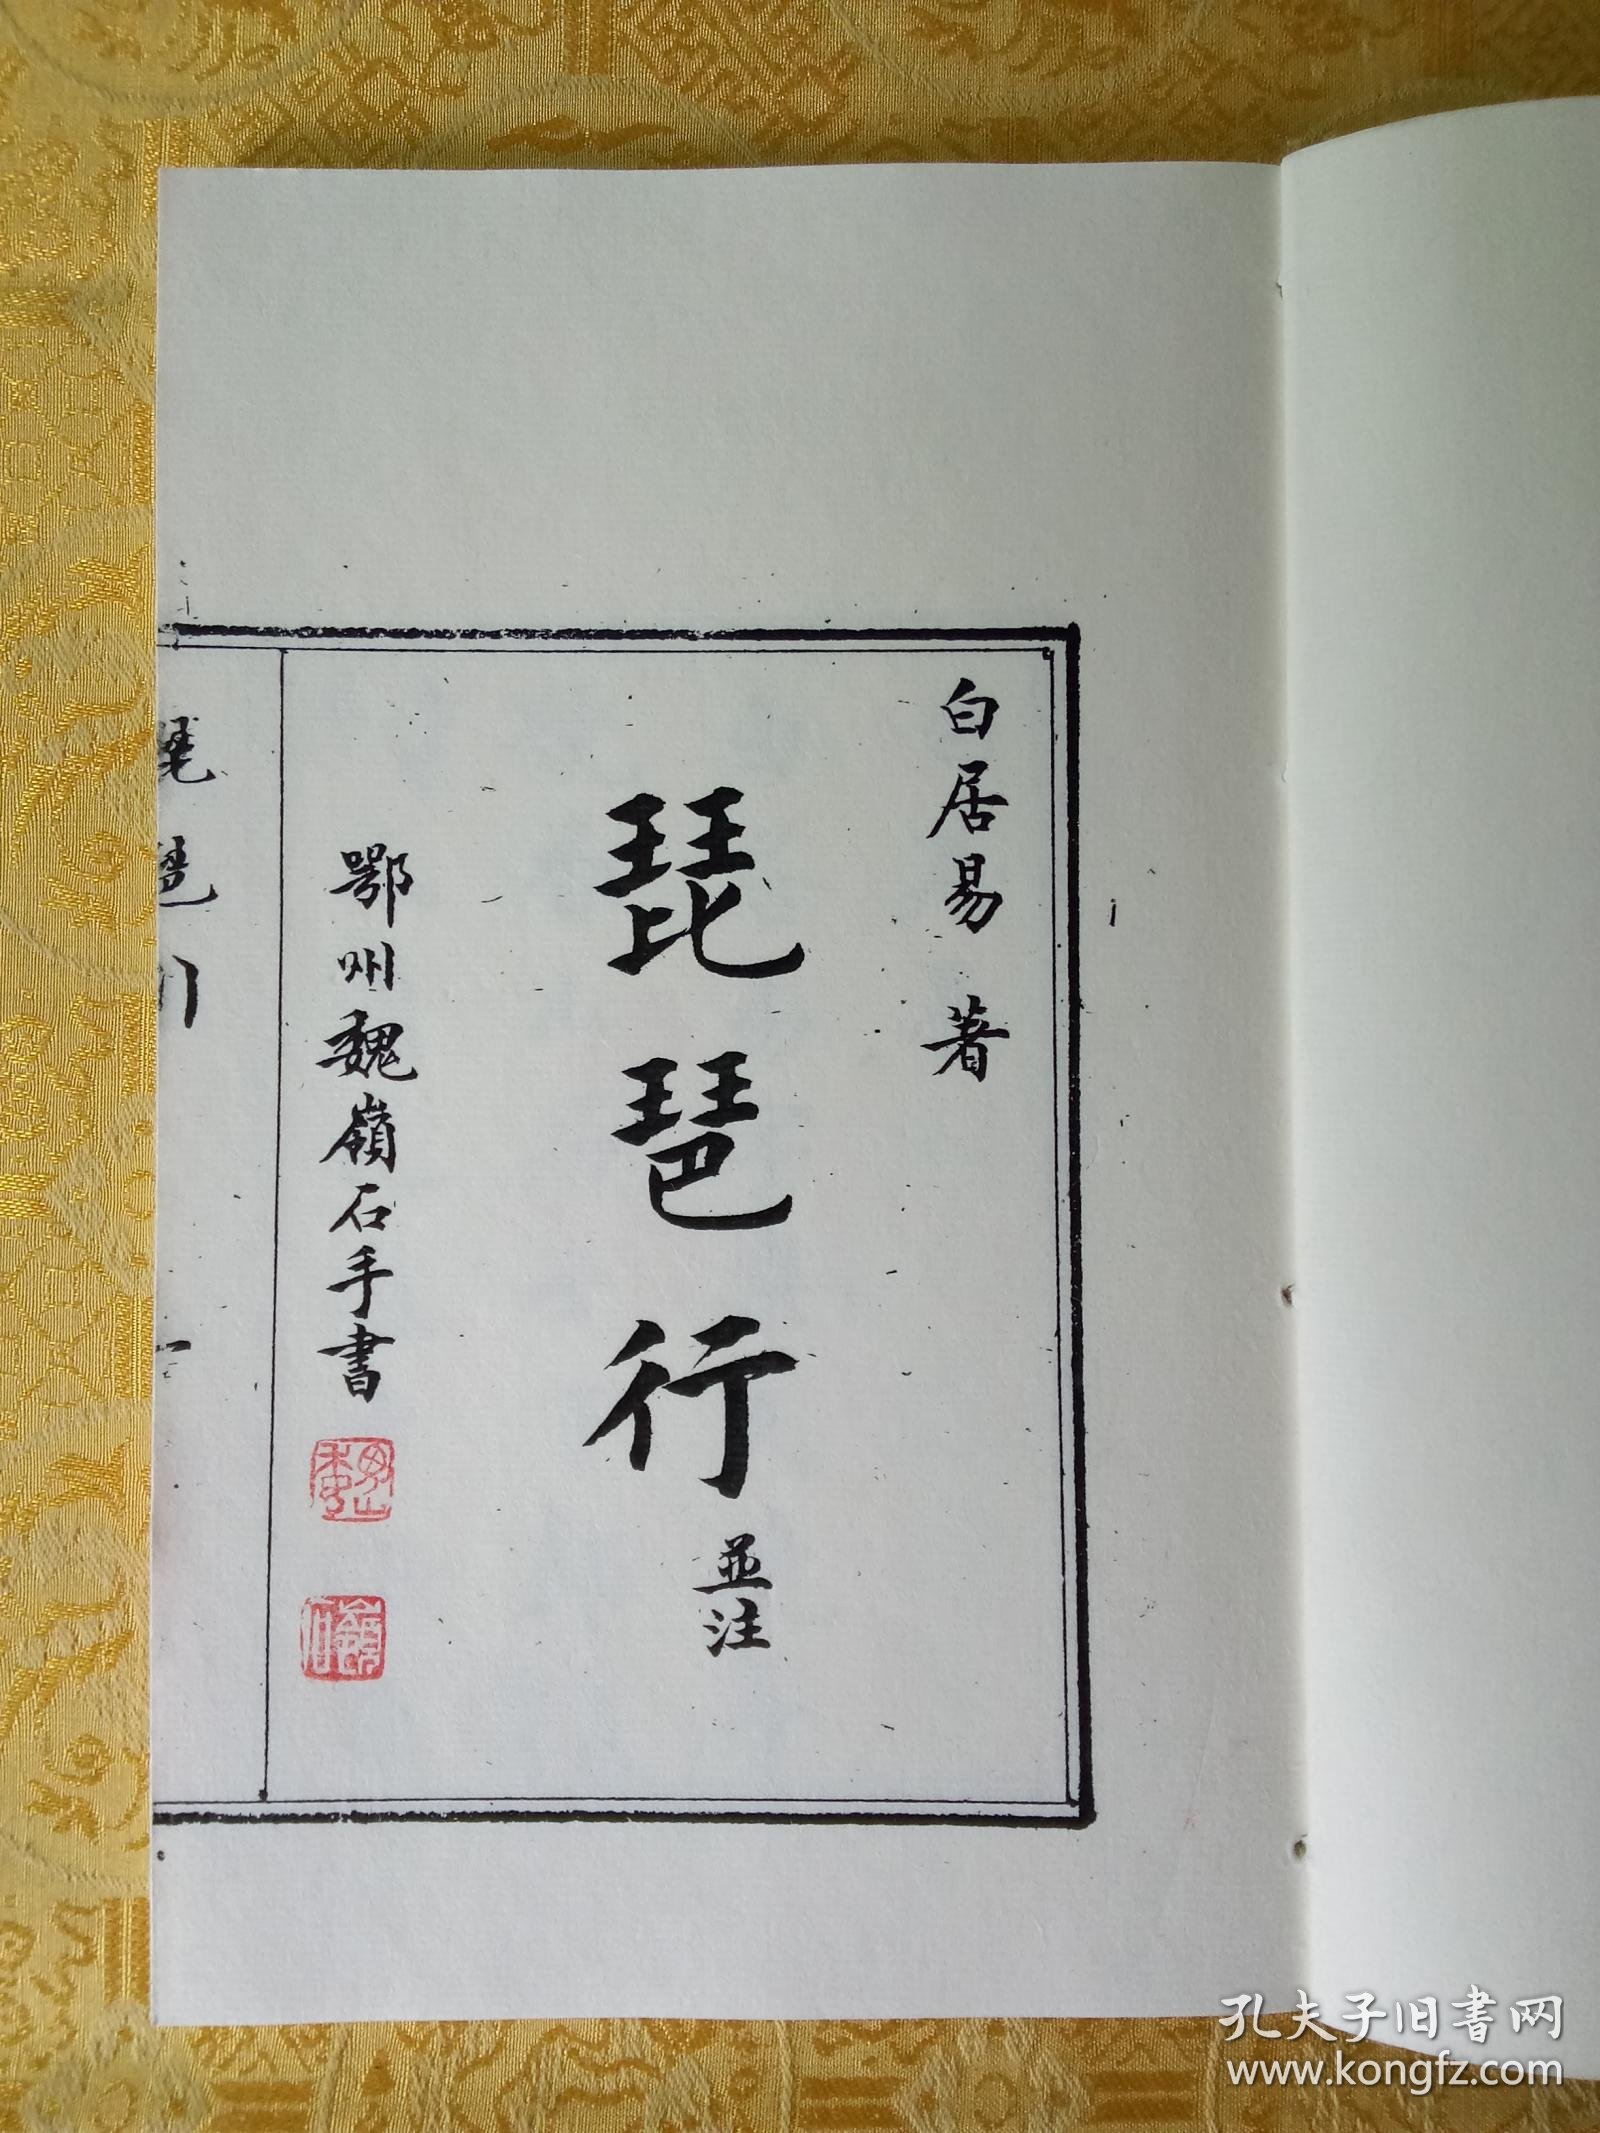 白居易 著
琵琶行 並注
鄂州魏嶺石手書
琵琶
孔夫子旧书网
www.kongfz.com